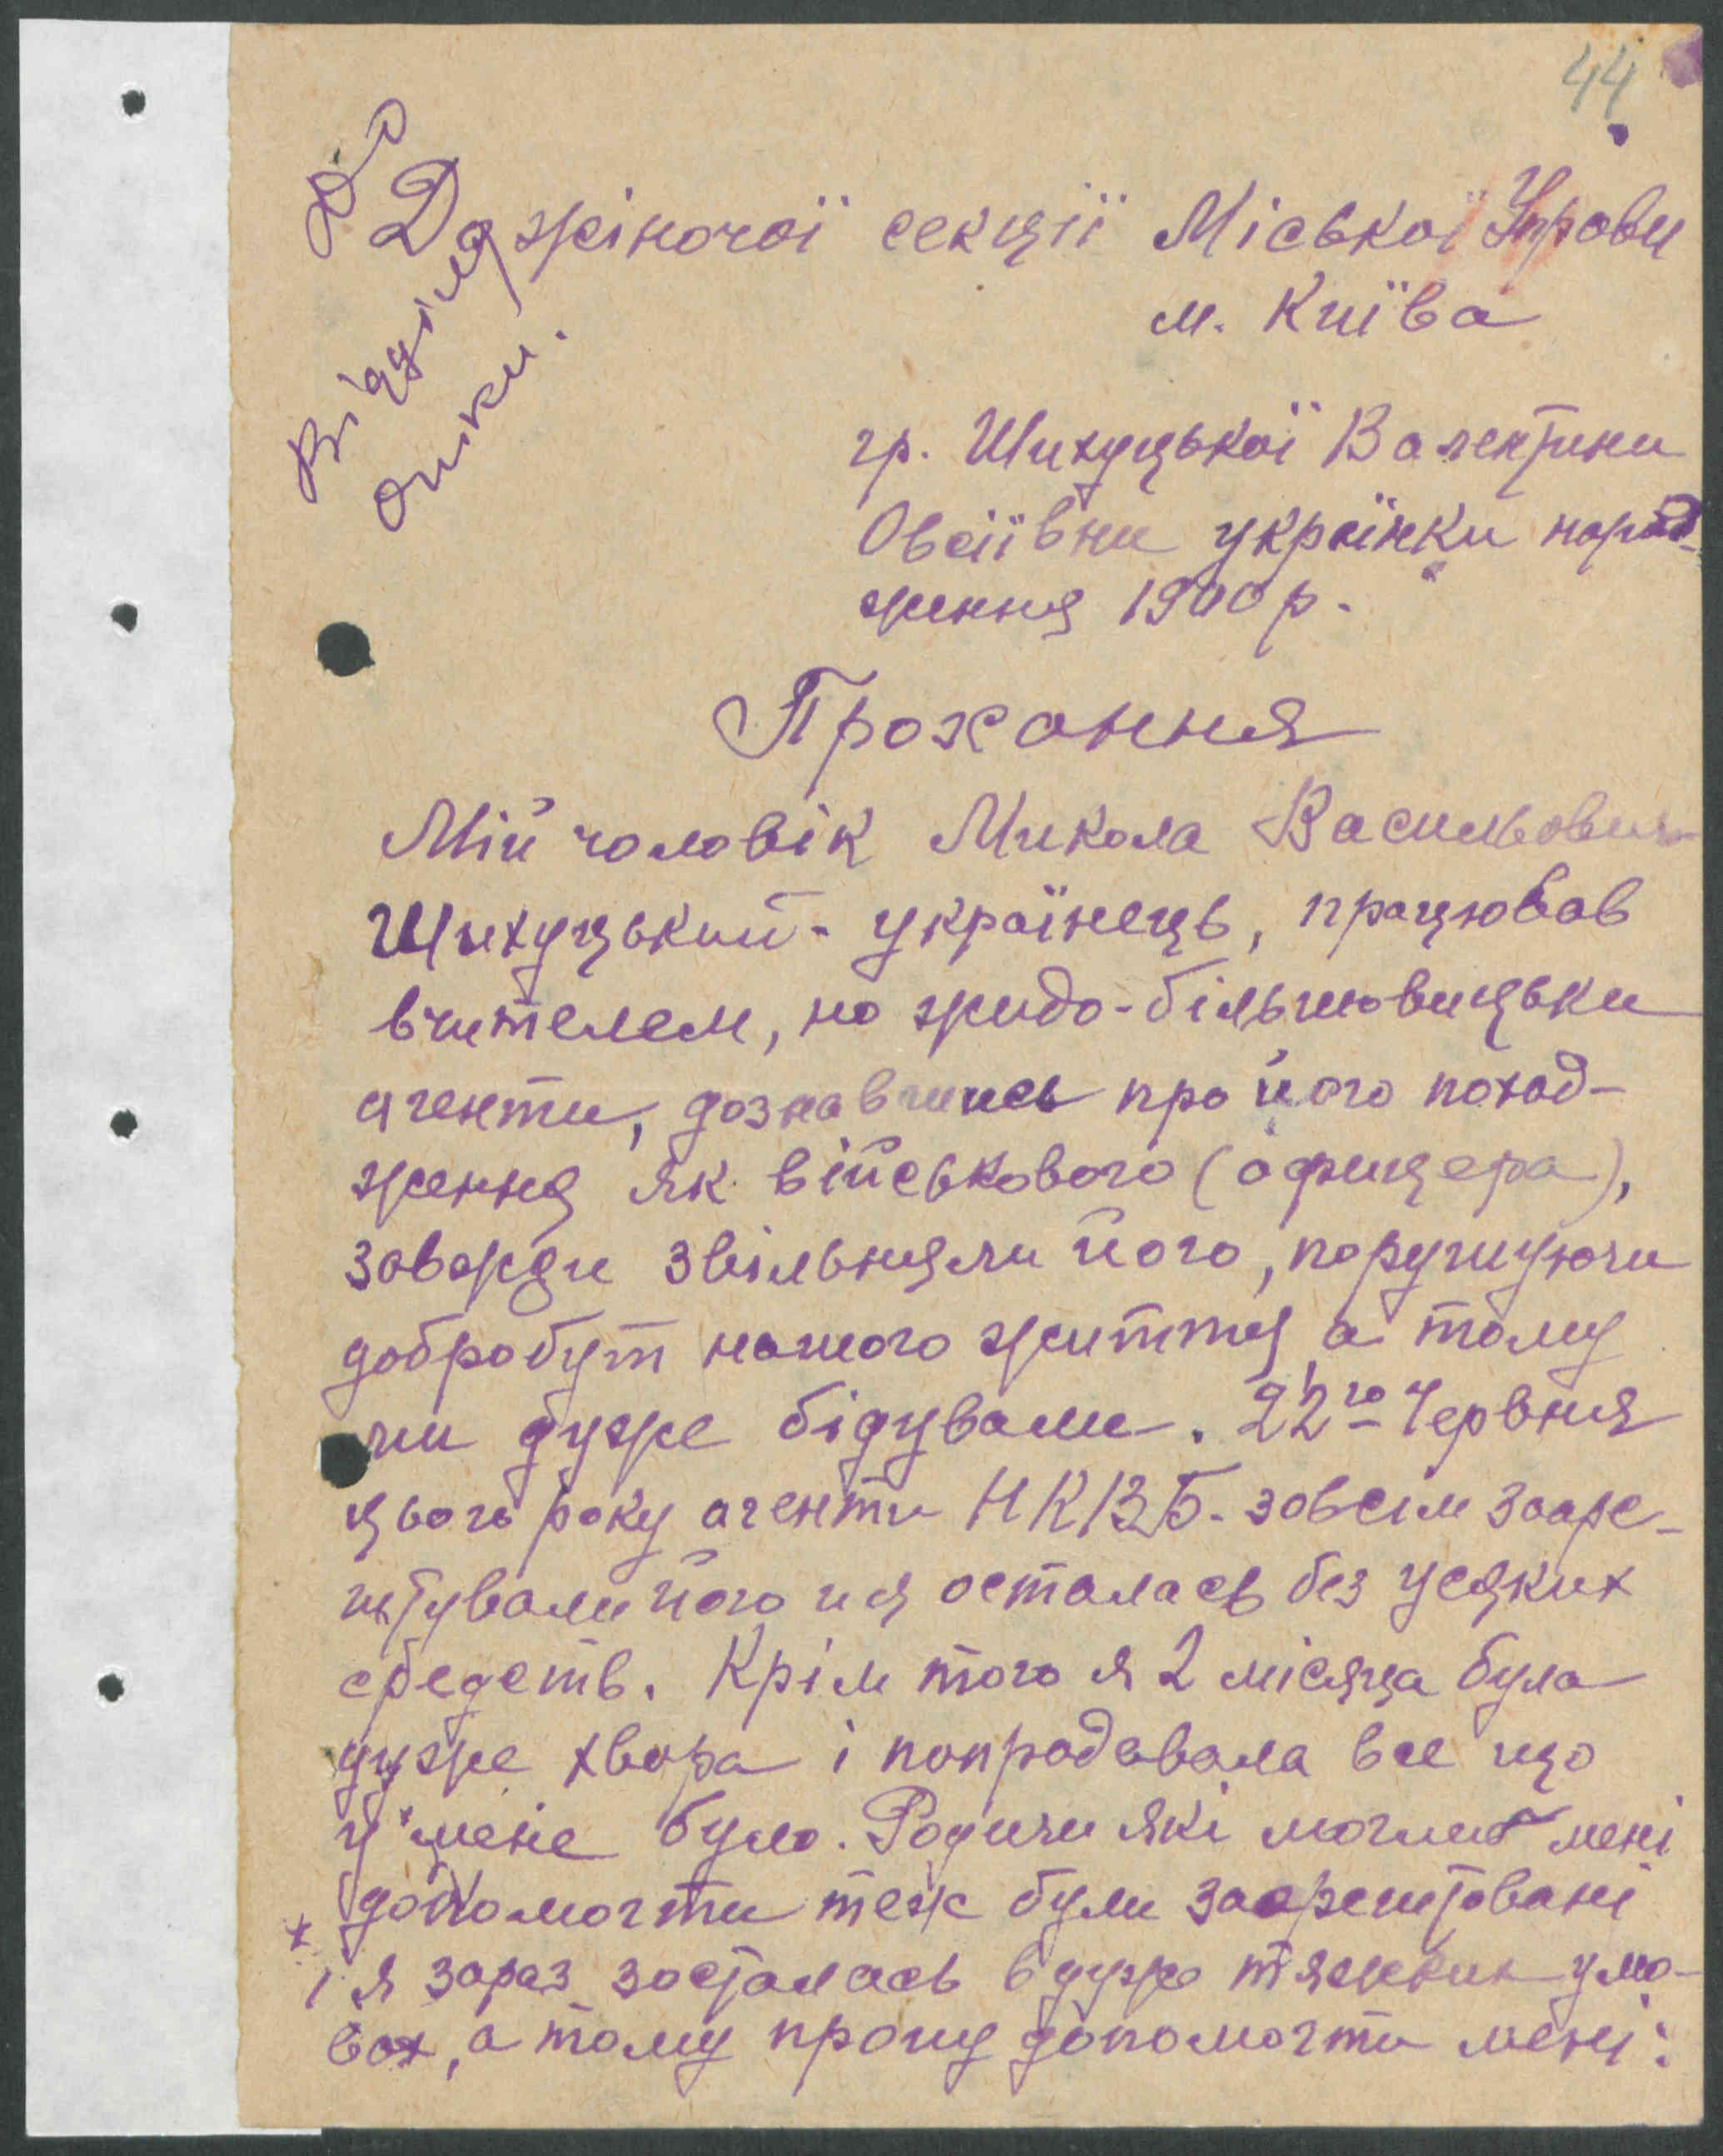 44
До
Відділу
опіки.
До жіночої секції Міської Управи
м. Київа
гр. Шихуцької Валентини
Овсіївни українки народ-
ження 1900 р.
Прохання
Мій чоловік Микола Васильович
Шихуцький - українець, працював
вчителем, но жидо-більшовицьки
агенти, дознавшись про його поход-
ження як військового (офицера),
завжди звільняли його, порушуючи
добробут нашого життя, а тому
ми дуже бідували. 22го Червня
цього року агенти НКВБ. зовсім зааре-
штували його и я осталась без усяких
средств. Крім того я 2 місяца була
дуже хвора і попродавала все що
у мене було. Родичи які могли б мені
допомогти теж були заарештовані
і я зараз зосталась в дуже тяжких умо-
вах, а тому прошу допомогти мені: